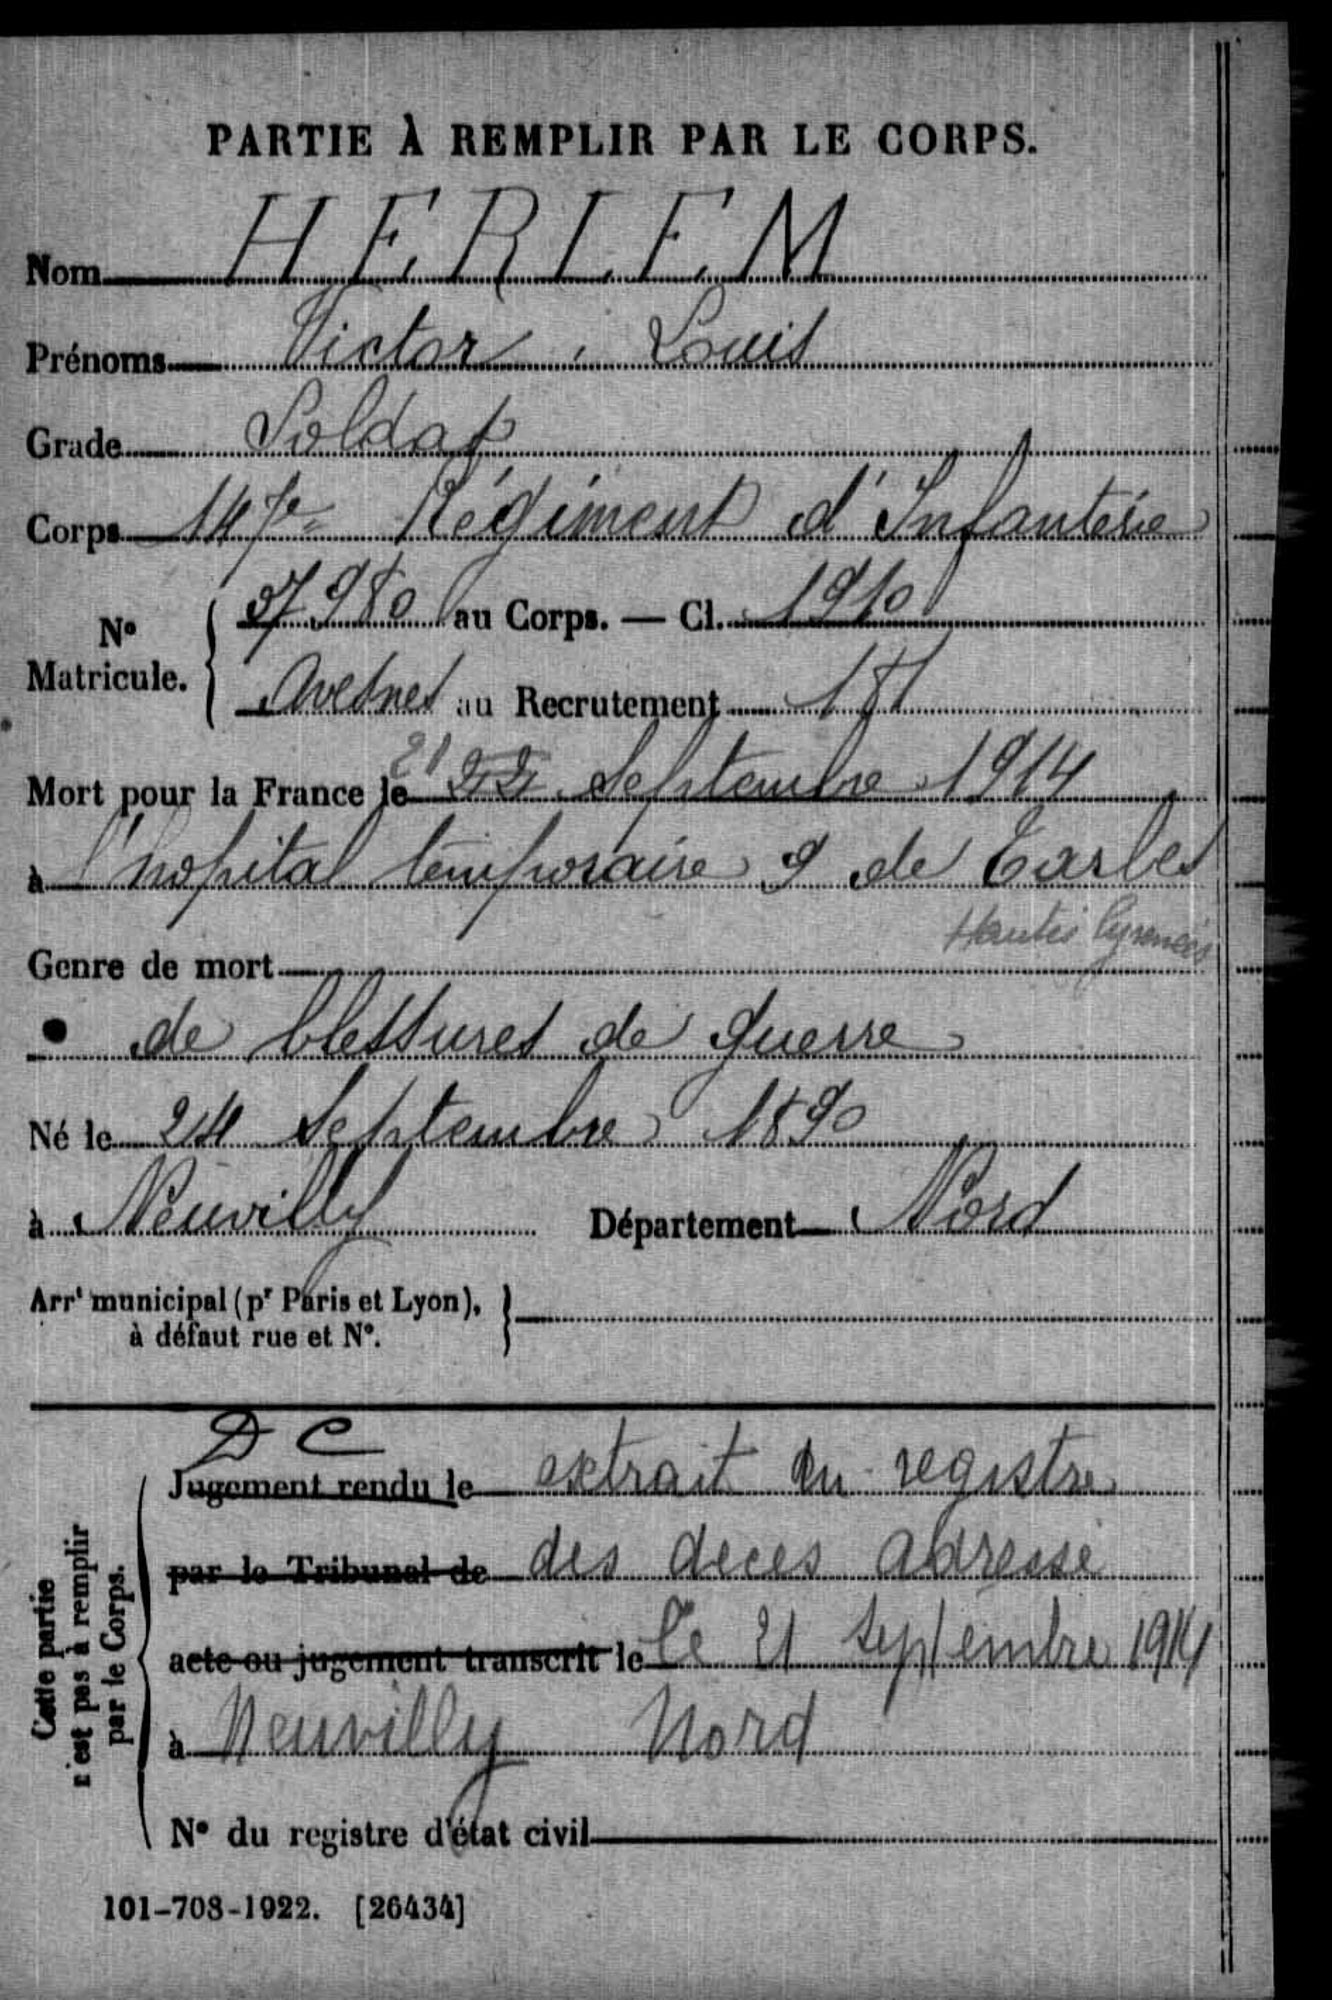 PARTIE À REMPLIR PAR LE CORPS.
Nom HERLEM
Prénoms Victor, Louis
Grade Soldat
Corps 147e Régiment d'Infanterie
N° Matricule. { 37980 au Corps. — Cl. 1910
Avesnes au Recrutement 181
Mort pour la France le 21 22 Septembre 1914
à l'hopital temporaire 9 de Tarbes
Hautes Pyrenées
Genre de mort
de blessures de guerre
Né le 24 Septembre 1890
à Neuvilly Département Nord
Arrt municipal (pr Paris et Lyon), }
à défaut rue et N°.
D C
Jugement rendu le extrait du registre
par le Tribunal de des deces adresse
acte ou jugement transcrit le le 21 septembre 1914
à Neuvilly Nord
N° du registre d'état civil
Cette partie
n'est pas à remplir
par le Corps.
101-708-1922. [26434]